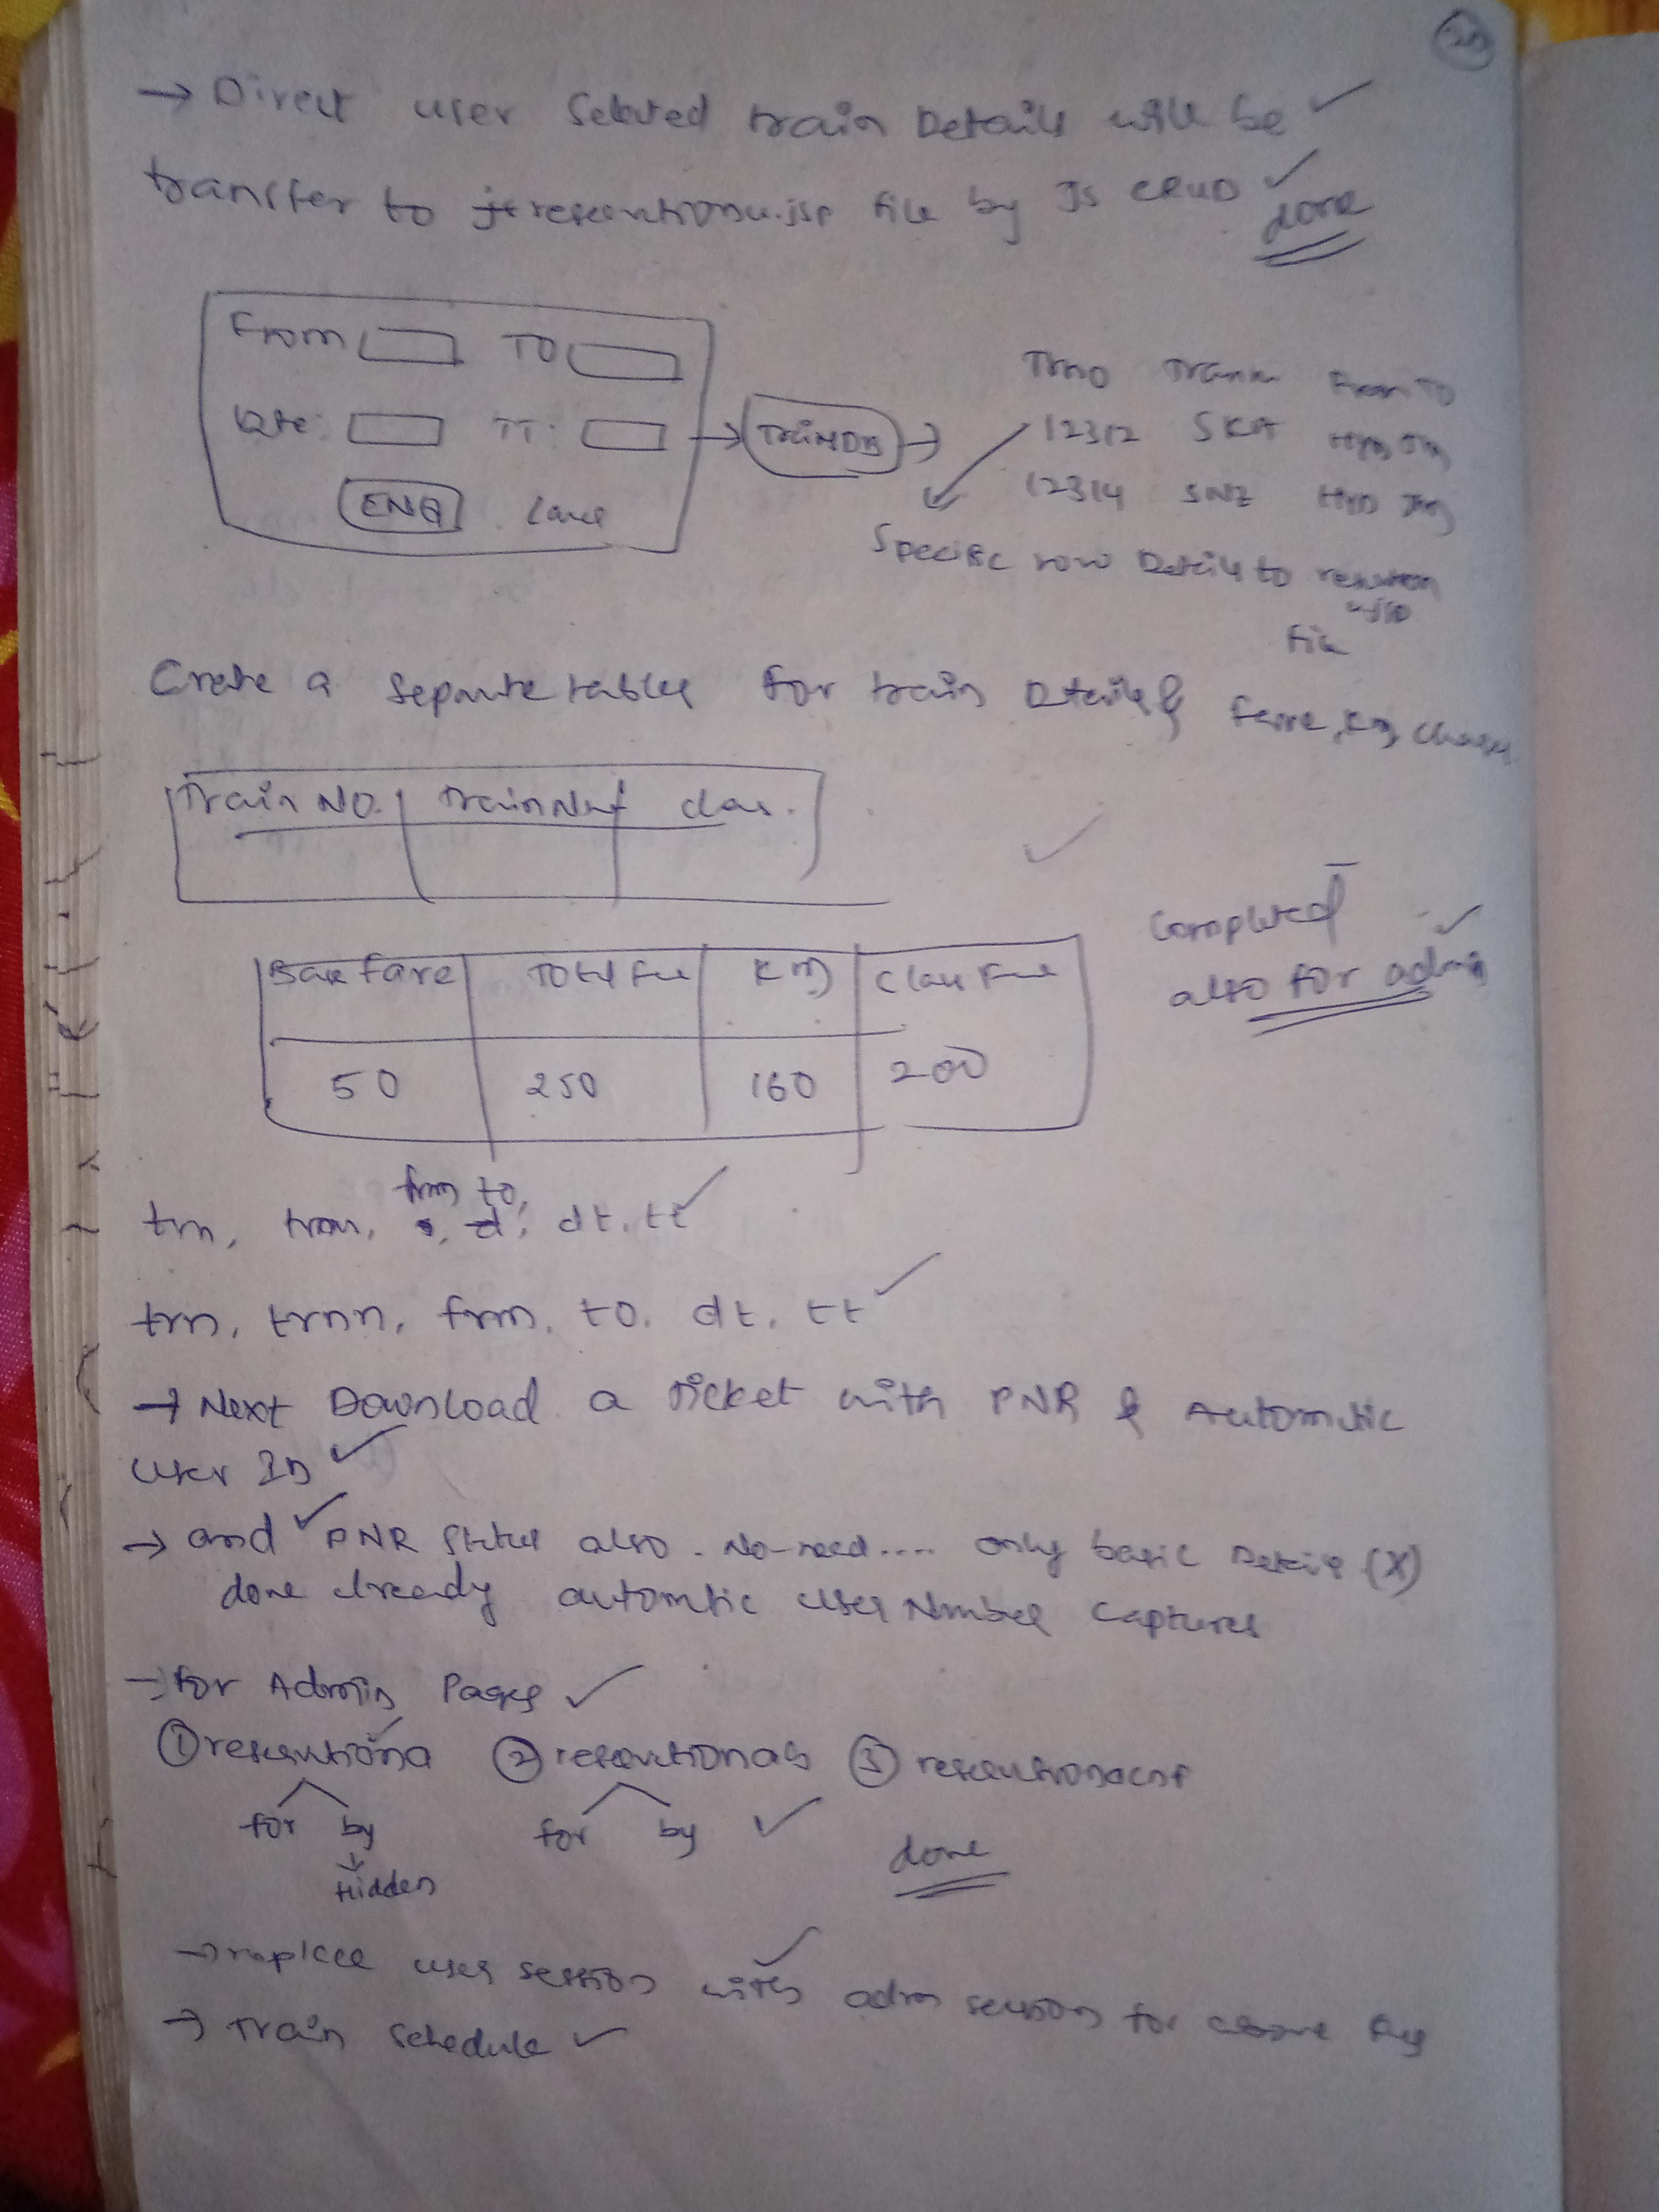 20
→ Direct user Selected train Details will be ✓
transfer to reservationu.jsp file by JS CRUD ✓
done
From TO
Date: TT:
ENQ
TrainDB
Trno Trann From To
12312 SKA Hyd
12314 SNZ HYD
Specific row Details to
file
Create a separate tables for train Details & faire, Km,
Train NO. Train Nm class.
✓
Completed
also for admin ✓
Base Fare Total Fare Km Class Fare
50 250 160 200
frm to,
trn, trnn, s, d, dt, tt ✓
trn, trnn, frm, to, dt, tt ✓
→ Next Download a Ticket with PNR & Automatic
user ID ✓
→ and ✓ PNR Status also. No-need.... only basic Details (X)
done already automatic user Number Captures
→ for Admin Pages ✓
① reservationa ✓ ② reservationas ③ reservationacnf
for by for by ✓
Hidden
done
→ replace user session with admn session for above
→ Train Schedule ✓